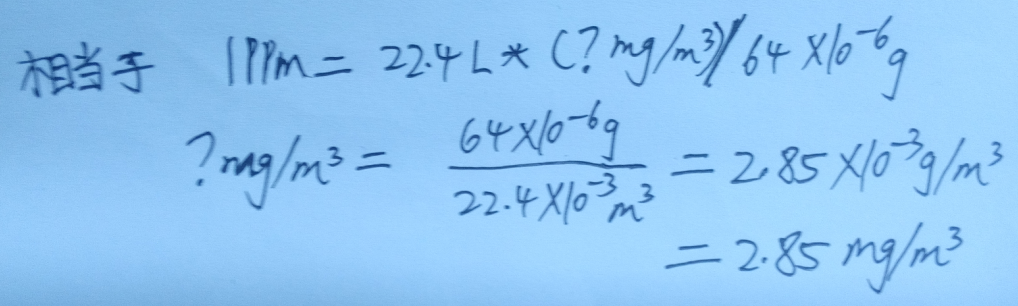 相当于 1PPm = 22.4L * (? mg/m³)/64×10⁻⁶g
? mg/m³ = 64×10⁻⁶g / 22.4×10⁻³m³ = 2.85×10⁻³g/m³
= 2.85 mg/m³